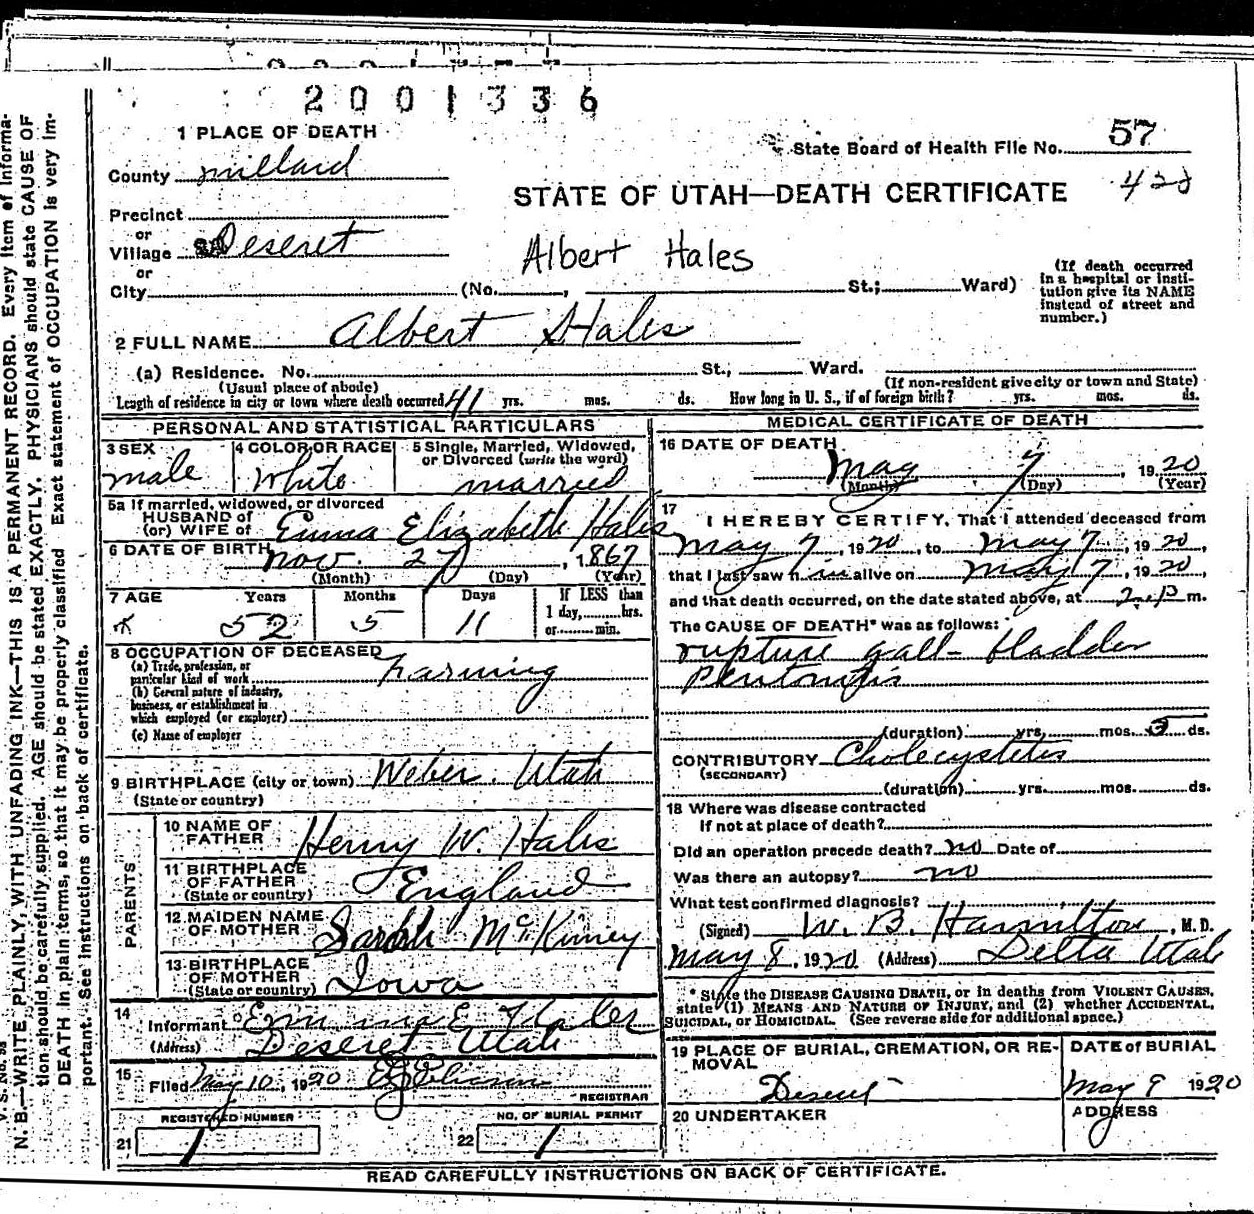 2001336
1 PLACE OF DEATH
State Board of Health File No. 57
County Millard
STATE OF UTAH—DEATH CERTIFICATE
Precinct
or
Village Deseret
Albert Hales
or
City (No. , St.; Ward)
(If death occurred in a hospital or institution give its NAME instead of street and number.)
2 FULL NAME Albert Hales
(a) Residence. No. St.; Ward.
(Usual place of abode) (If non-resident give city or town and State)
Length of residence in city or town where death occurred 41 yrs. mos. ds. How long in U. S., if of foreign birth? yrs. mos. ds.
PERSONAL AND STATISTICAL PARTICULARS
3 SEX male
4 COLOR OR RACE White
5 Single, Married, Widowed, or Divorced (write the word) married
5a If married, widowed, or divorced
HUSBAND of
(or) WIFE of Emma Elizabeth Hales
6 DATE OF BIRTH Nov. 27, 1867
(Month) (Day) (Year)
7 AGE Years Months Days If LESS than
1 day, hrs.
or min.
52 5 11
8 OCCUPATION OF DECEASED
(a) Trade, profession, or
particular kind of work Farming
(b) General nature of industry,
business, or establishment in
which employed (or employer)
(c) Name of employer
9 BIRTHPLACE (city or town) Weber. Utah
(State or country)
PARENTS
10 NAME OF
FATHER Henry W. Hales
11 BIRTHPLACE
OF FATHER
(State or country) England
12 MAIDEN NAME
OF MOTHER Sarah McKinney
13 BIRTHPLACE
OF MOTHER
(State or country) Iowa
14
Informant Emma E Hales
(Address) Deseret Utah
15
Filed May 10, 1920
REGISTRAR
REGISTERED NUMBER NO. OF BURIAL PERMIT
21 1 22 1
MEDICAL CERTIFICATE OF DEATH
16 DATE OF DEATH
May 7, 1920
(Month) (Day) (Year)
17
I HEREBY CERTIFY, That I attended deceased from
May 7, 1920, to May 7, 1920,
that I last saw him alive on May 7, 1920
and that death occurred, on the date stated above, at 2 P m.
The CAUSE OF DEATH* was as follows:
rupture gall-bladder
Peritonitis
(duration) yrs. mos. 5 ds.
CONTRIBUTORY Cholecystitis
(SECONDARY)
(duration) yrs. mos. ds.
18 Where was disease contracted
If not at place of death?
Did an operation precede death? no Date of
Was there an autopsy? no
What test confirmed diagnosis?
(Signed) W. B. Hamilton, M.D.
May 8, 1920 (Address) Delta Utah
* State the DISEASE CAUSING DEATH, or in deaths from VIOLENT CAUSES,
state (1) MEANS AND NATURE OF INJURY, and (2) whether ACCIDENTAL,
SUICIDAL, or HOMICIDAL. (See reverse side for additional space.)
19 PLACE OF BURIAL, CREMATION, OR REMOVAL
Deseret
DATE of BURIAL
May 9 1920
20 UNDERTAKER
ADDRESS
READ CAREFULLY INSTRUCTIONS ON BACK OF CERTIFICATE.
N. B.—WRITE PLAINLY, WITH UNFADING INK—THIS IS A PERMANENT RECORD. Every item of Informa-
tion should be carefully supplied. AGE should be stated EXACTLY. PHYSICIANS should state CAUSE OF
DEATH in plain terms, so that it may be properly classified. Exact statement of OCCUPATION is very im-
portant. See instructions on back of certificate.